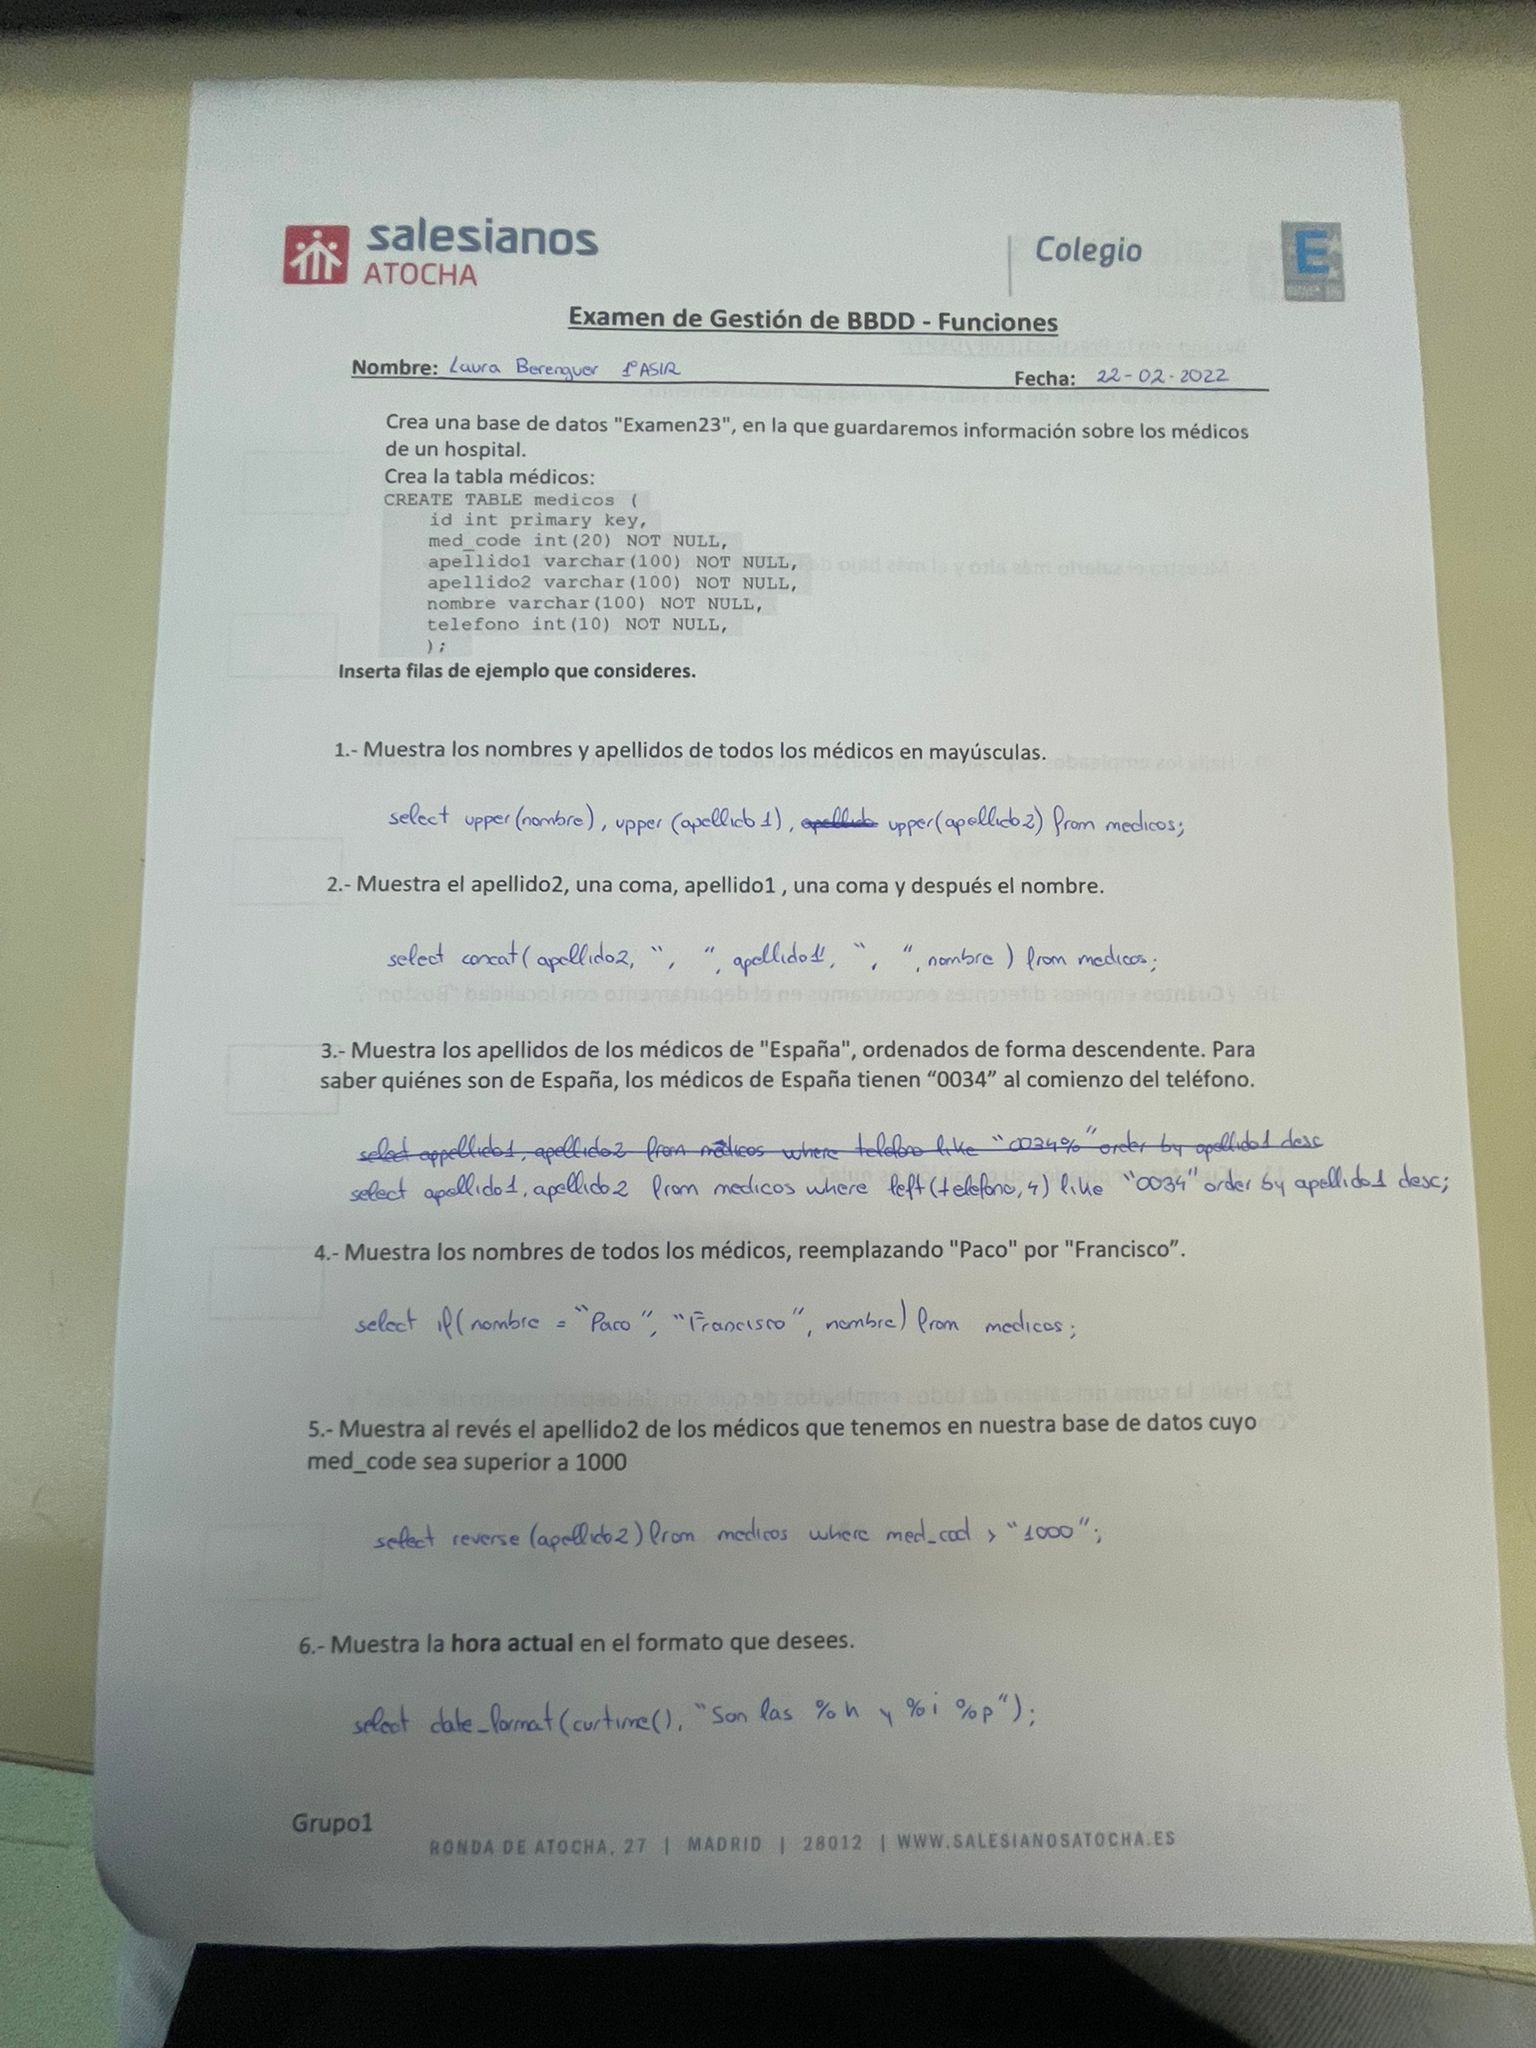 salesianos
ATOCHA
Colegio
E
Examen de Gestión de BBDD - Funciones
Nombre: Laura Berenguer 1º ASIR
Fecha: 22-02-2022
Crea una base de datos "Examen23", en la que guardaremos información sobre los médicos
de un hospital.
Crea la tabla médicos:
CREATE TABLE medicos (
id int primary key,
med_code int(20) NOT NULL,
apellido1 varchar(100) NOT NULL,
apellido2 varchar(100) NOT NULL,
nombre varchar(100) NOT NULL,
telefono int(10) NOT NULL,
);
Inserta filas de ejemplo que consideres.
1.- Muestra los nombres y apellidos de todos los médicos en mayúsculas.
select upper(nombre), upper (apellido1), apellido upper(apellido2) from medicos;
2.- Muestra el apellido2, una coma, apellido1 , una coma y después el nombre.
select concat( apellido2, ", ", apellido1, ", ", nombre ) from medicos;
3.- Muestra los apellidos de los médicos de "España", ordenados de forma descendente. Para
saber quiénes son de España, los médicos de España tienen “0034” al comienzo del teléfono.
select appellido1, apellido2 from medicos where telefono like "0034%" order by apellido1 desc
select apellido1, apellido2 from medicos where left(telefono, 4) like "0034" order by apellido1 desc;
4.- Muestra los nombres de todos los médicos, reemplazando "Paco" por "Francisco”.
select if( nombre = "Paco", "Francisco", nombre) from medicos;
5.- Muestra al revés el apellido2 de los médicos que tenemos en nuestra base de datos cuyo
med_code sea superior a 1000
select reverse (apellido2) from medicos where med_cod > "1000";
6.- Muestra la hora actual en el formato que desees.
select date_format(curtime(), "Son las %h y %i %p");
Grupo1
RONDA DE ATOCHA, 27 | MADRID | 28012 | WWW.SALESIANOSATOCHA.ES